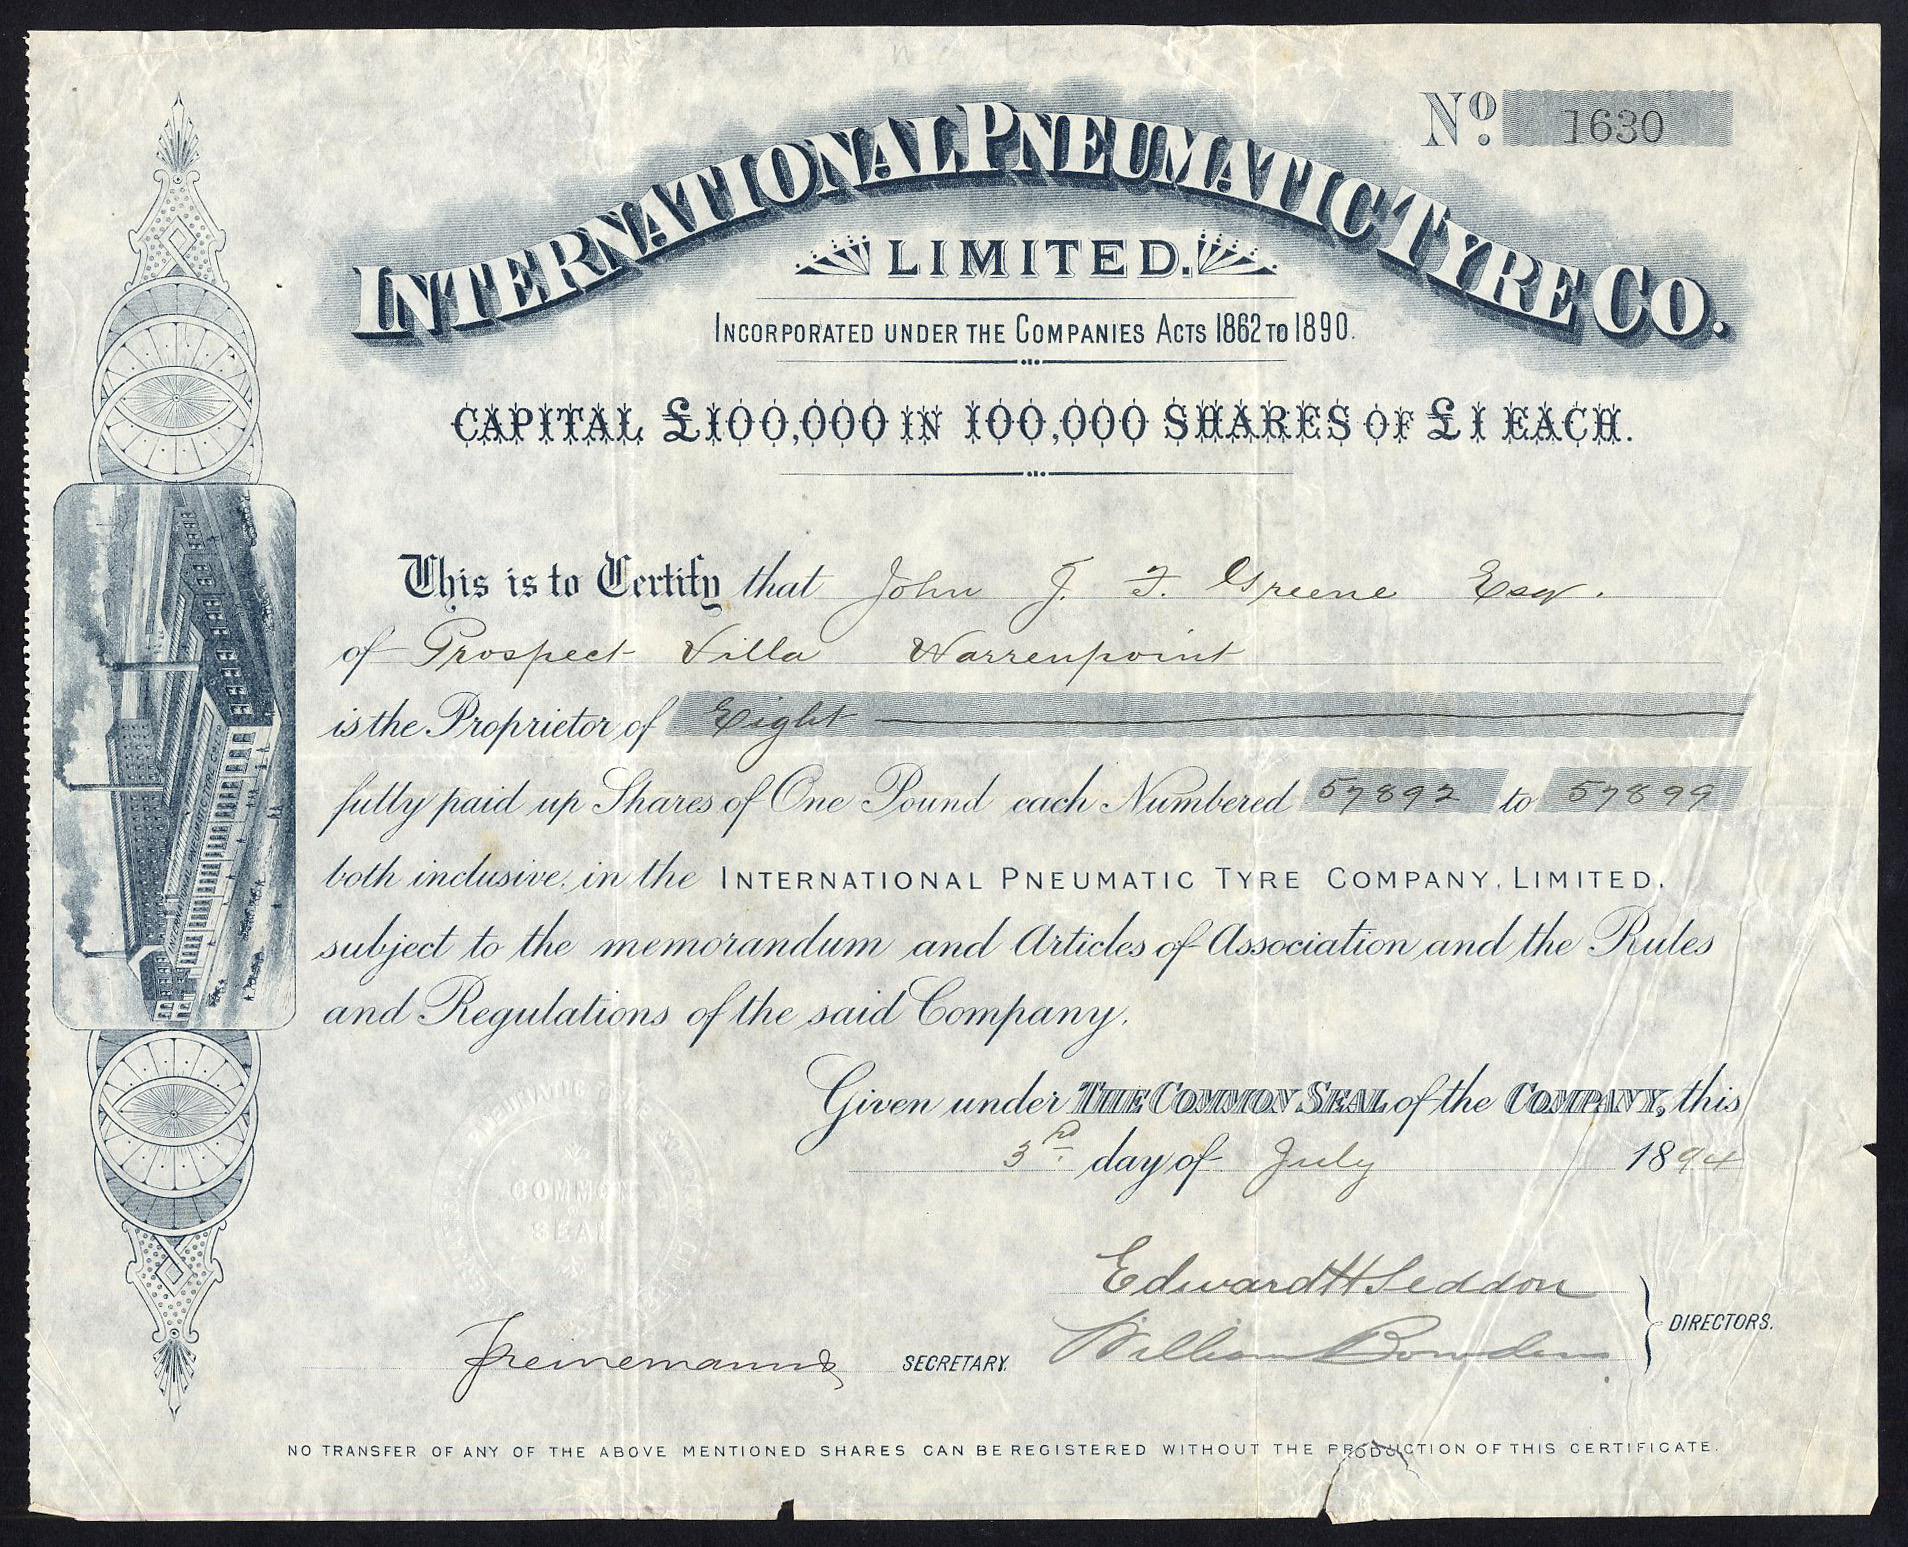 No. 1630
INTERNATIONAL PNEUMATIC TYRE CO.
LIMITED.
INCORPORATED UNDER THE COMPANIES ACTS 1862 TO 1890.
CAPITAL £100,000 IN 100,000 SHARES OF £1 EACH.
This is to Certify that John J. F. Greene Esqr.
of Prospect Villa Warrenpoint
is the Proprietor of Eight
fully paid up Shares of One Pound each Numbered 57892 to 57899
both inclusive, in the INTERNATIONAL PNEUMATIC TYRE COMPANY, LIMITED,
subject to the memorandum and Articles of Association and the Rules
and Regulations of the said Company.
INTERNATIONAL PNEUMATIC TYRE CO LTD
Given under THE COMMON SEAL of the COMPANY, this
3rd day of July 1894
PNEUMATIC
COMMON
SEAL
Edward H Seddon
William Bowden
DIRECTORS.
SECRETARY.
NO TRANSFER OF ANY OF THE ABOVE MENTIONED SHARES CAN BE REGISTERED WITHOUT THE PRODUCTION OF THIS CERTIFICATE.